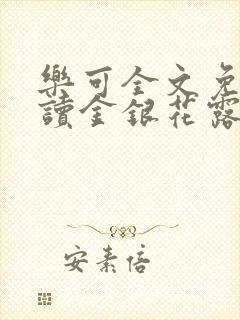 樂可全文免
讀金銀花露
安素倍